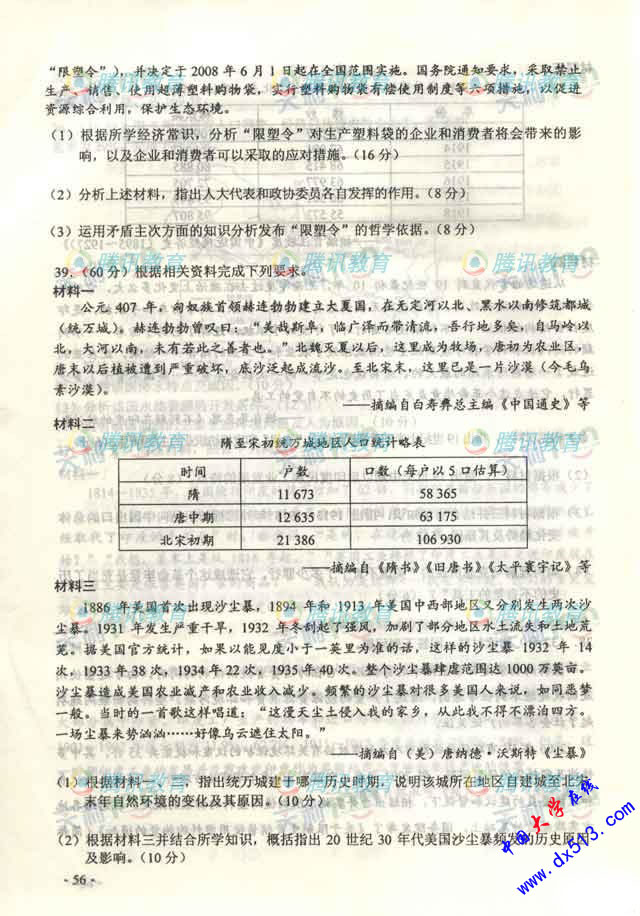 “限塑令”)，并决定于 2008 年 6 月 1 日起在全国范围实施。国务院通知要求，采取禁止
生产、销售、使用超薄塑料购物袋，实行塑料购物袋有偿使用制度等六项措施，以促进
资源综合利用，保护生态环境。
(1) 根据所学经济常识，分析“限塑令”对生产塑料袋的企业和消费者将会带来的影
响，以及企业和消费者可以采取的应对措施。(16 分)
(2) 分析上述材料，指出人大代表和政协委员各自发挥的作用。(8 分)
(3) 运用矛盾主次方面的知识分析发布“限塑令”的哲学依据。(8 分)
39. (60 分) 根据相关资料完成下列要求。
材料一
公元 407 年，匈奴族首领赫连勃勃建立大夏国，在无定河以北、黑水以南修筑都城
(统万城)。赫连勃勃曾叹曰：“美哉斯阜，临广泽而带清流，吾行地多矣，自马岭以
北，大河以南，未有若此之善者也。”北魏灭夏以后，这里成为牧场，唐初为农业区，
唐末以后植被遭到严重破坏，底沙泛起成流沙。至北宋末，这里已是一片沙漠（今毛乌
素沙漠)。
——摘编自白寿彝总主编《中国通史》等
材料二
隋至宋初统万城地区人口统计略表
时间 户数 口数（每户以 5 口估算）
隋 11 673 58 365
唐中期 12 635 63 175
北宋初期 21 386 106 930
——摘编自《隋书》《旧唐书》《太平寰宇记》等
材料三
1886 年美国首次出现沙尘暴，1894 年和 1913 年美国中西部地区又分别发生两次沙
尘暴。1931 年发生严重干旱，1932 年冬刮起了强风，加剧了部分地区水土流失和土地荒
芜。据美国官方统计，如果以能见度小于一英里为准的话，这样的沙尘暴 1932 年 14
次，1933 年 38 次，1934 年 22 次，1935 年 40 次。整个沙尘暴肆虐范围达 1000 万英亩。
沙尘暴造成美国农业减产和农业收入减少。频繁的沙尘暴对很多美国人来说，如同恶梦
一般。当时的一首歌这样唱道：“这漫天尘土侵入我的家乡，从此我不得不漂泊四方。
一场尘暴来势汹汹……好像乌云遮住太阳。”
——摘编自（美）唐纳德·沃斯特《尘暴》
(1) 根据材料一、二，指出统万城建于哪一历史时期，说明该城所在地区自建城至北宋
末年自然环境的变化及其原因。(10 分)
(2) 根据材料三并结合所学知识，概括指出 20 世纪 30 年代美国沙尘暴频发的历史原因
及影响。(10 分)
- 56 -
腾讯教育
中国大学在线
www.dx513.com